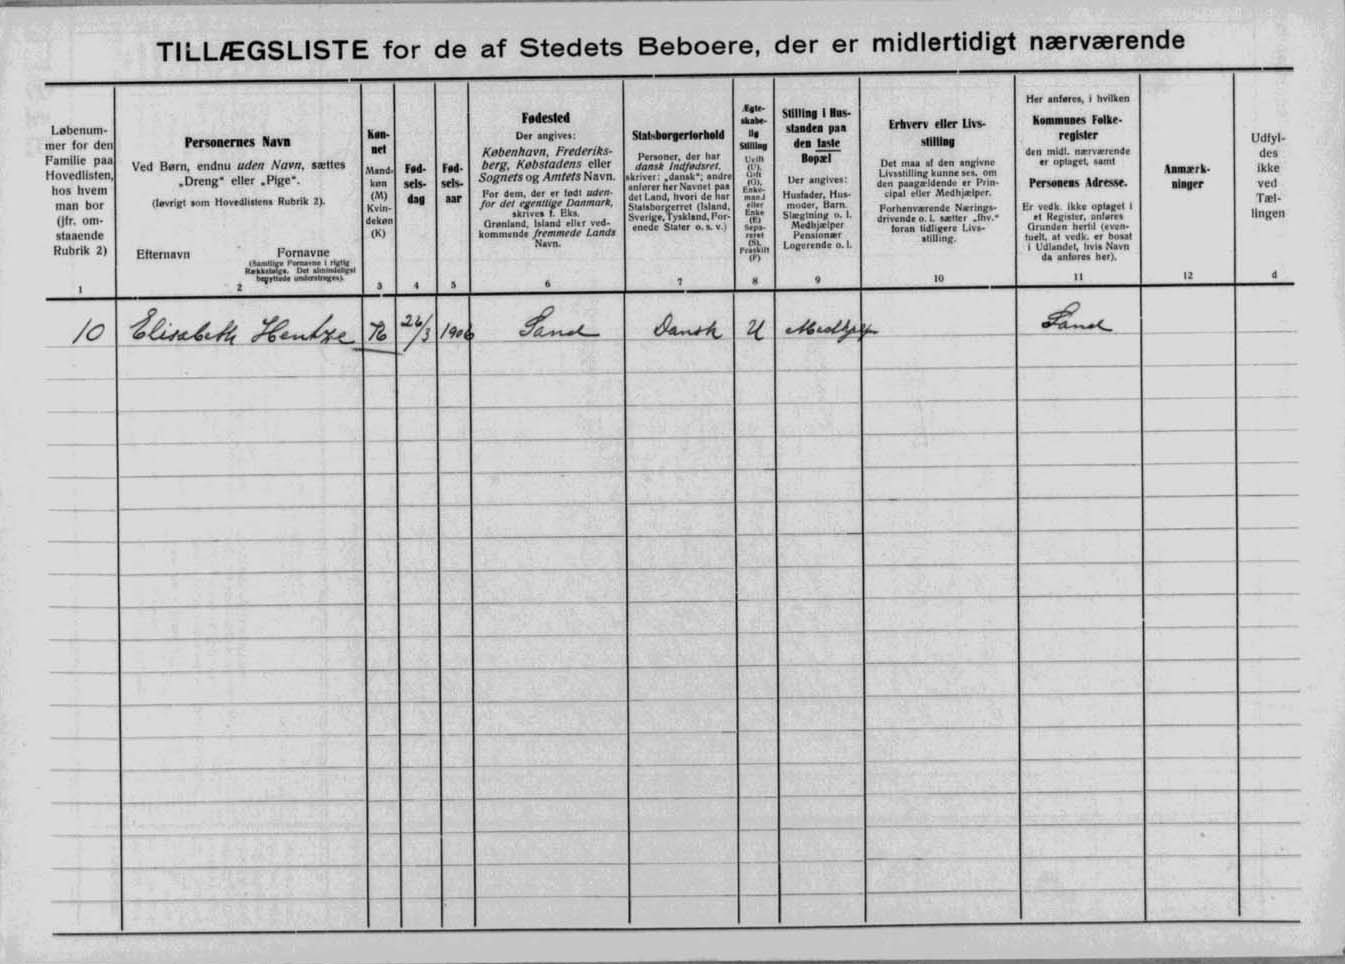 TILLÆGSLISTE for de af Stedets Beboere, der er midlertidigt nærværende
Løbenum-
mer for den
Familie paa
Hovedlisten,
hos hvem
man bor
(jfr. om-
staaende
Rubrik 2)
1
Personernes Navn
Ved Børn, endnu uden Navn, sættes
„Dreng“ eller „Pige“.
(Iøvrigt som Hovedlistens Rubrik 2).
Efternavn Fornavne
(Samtlige Fornavne i rigtig
Rækkefølge. Det almindeligst
benyttede understreges).
2
Køn-
net
Mand-
køn
(M)
Kvin-
dekøn
(K)
3
Fød-
sels-
dag
4
Fød-
sels-
aar
5
Fødested
Der angives:
København, Frederiks-
berg, Købstadens eller
Sognets og Amtets Navn.
For dem, der er født uden-
for det egentlige Danmark,
skrives f. Eks.
Grønland, Island eller ved-
kommende fremmede Lands
Navn.
6
Statsborgerforhold
Personer, der har
dansk Indfødsret,
skriver: „dansk“; andre
anfører her Navnet paa
det Land, hvori de har
Statsborgerret (Island,
Sverige, Tyskland, For-
enede Stater o. s. v.)
7
Ægte-
skabe-
lig
Stilling
Ugift
(U),
Gift
(G),
Enke-
mand
eller
Enke
(E)
Sepa-
reret
(S),
Fraskilt
(F)
8
Stilling i Hus-
standen paa
den faste
Bopæl
Der angives:
Husfader, Hus-
moder, Barn.
Slægtning o. l.
Medhjælper
Pensionær
Logerende o. l.
9
Erhverv eller Livs-
stilling
Det maa af den angivne
Livsstilling kunne ses, om
den paagældende er Prin-
cipal eller Medhjælper.
Forhenværende Nærings-
drivende o. l. sætter „fhv.“
foran tidligere Livs-
stilling.
10
Her anføres, i hvilken
Kommunes Folke-
register
den midl. nærværende
er optaget, samt
Personens Adresse.
Er vedk. ikke optaget i
et Register, anføres
Grunden hertil (even-
tuelt, at vedk. er bosat
i Udlandet, hvis Navn
da anføres her).
11
Anmærk-
ninger
12
Udfyl-
des
ikke
ved
Tæl-
lingen
d
10 Elisabeth Hentze K 26/3 1906 Sand Dansk U Medhjælp Sand